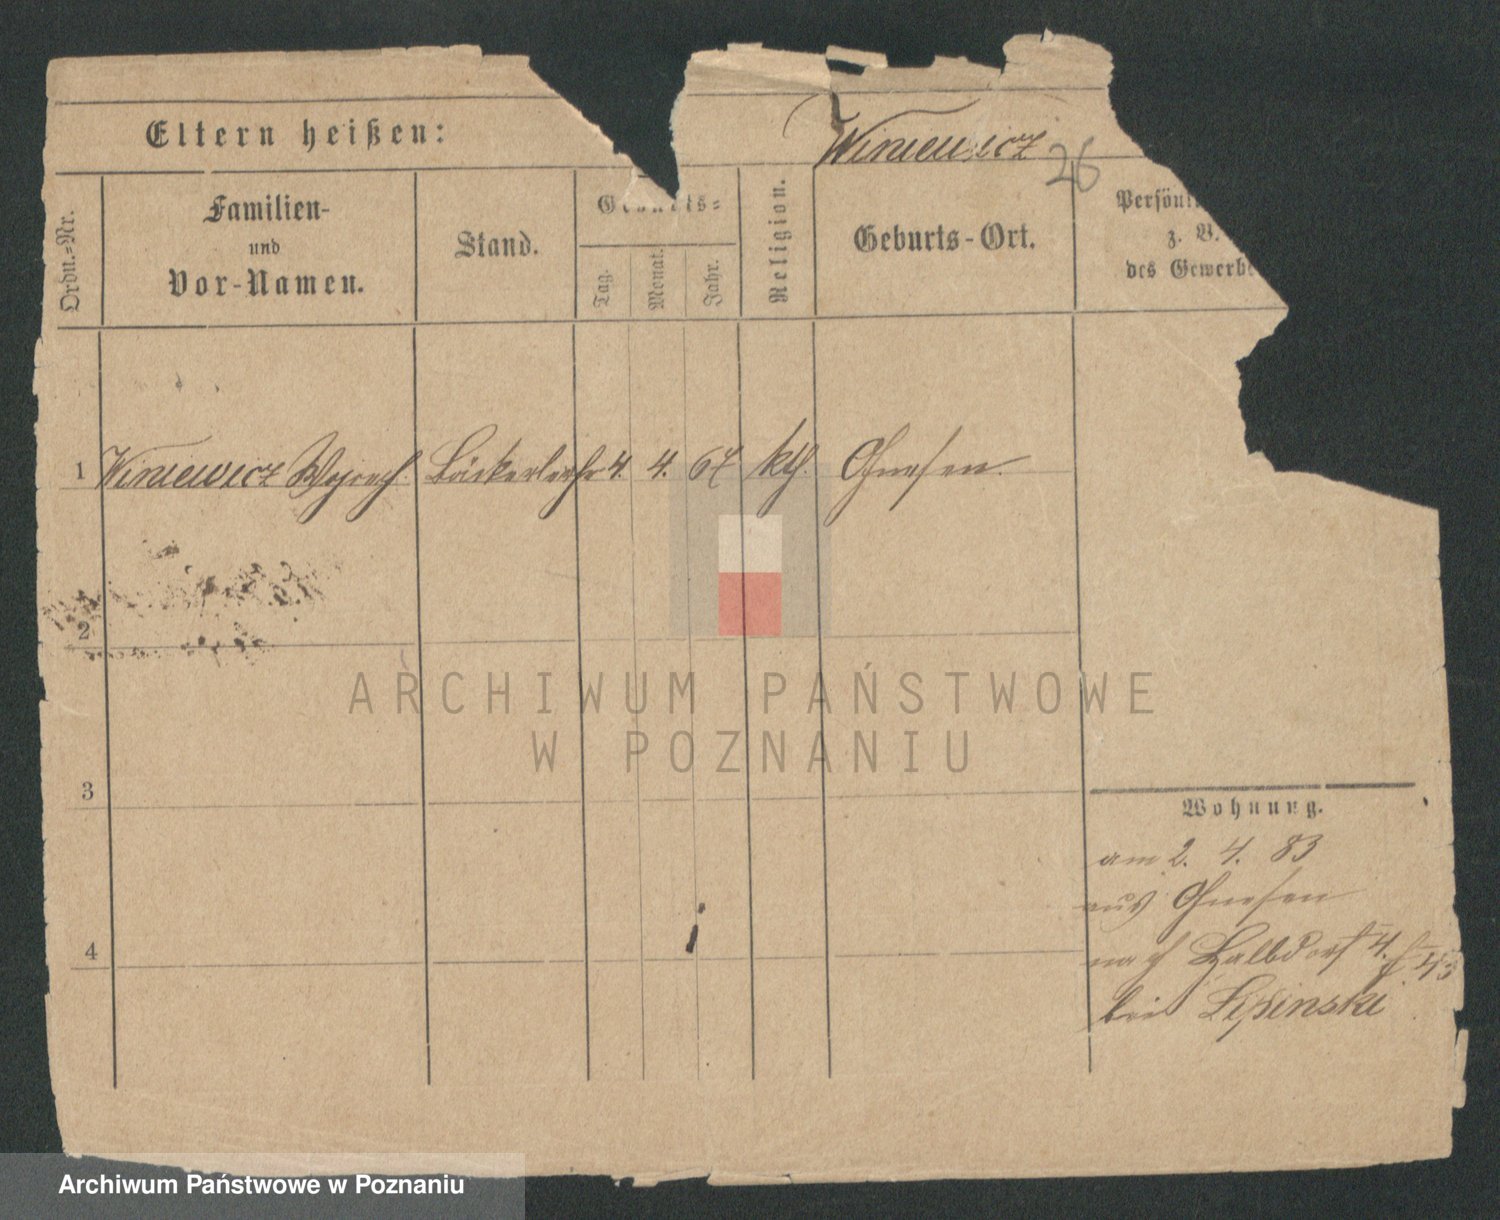 Eltern heißen:
Winiewicz
26
Ordn.=Nr.
Familien-
und
Vor-Namen.
Stand.
Geburts=
Tag.
Monat.
Jahr.
Religion.
Geburts-Ort.
z. B.
des
1 Winiewicz Bäckerlehr 4. 4. 67 kth. Gnesen
2
3
4
Wohnung.
am 2. 4. 83
aus Gnesen
nach Halbdorf 4.
bei Lipinski
ARCHIWUM PAŃSTWOWE
W POZNANIU
Archiwum Państwowe w Poznaniu